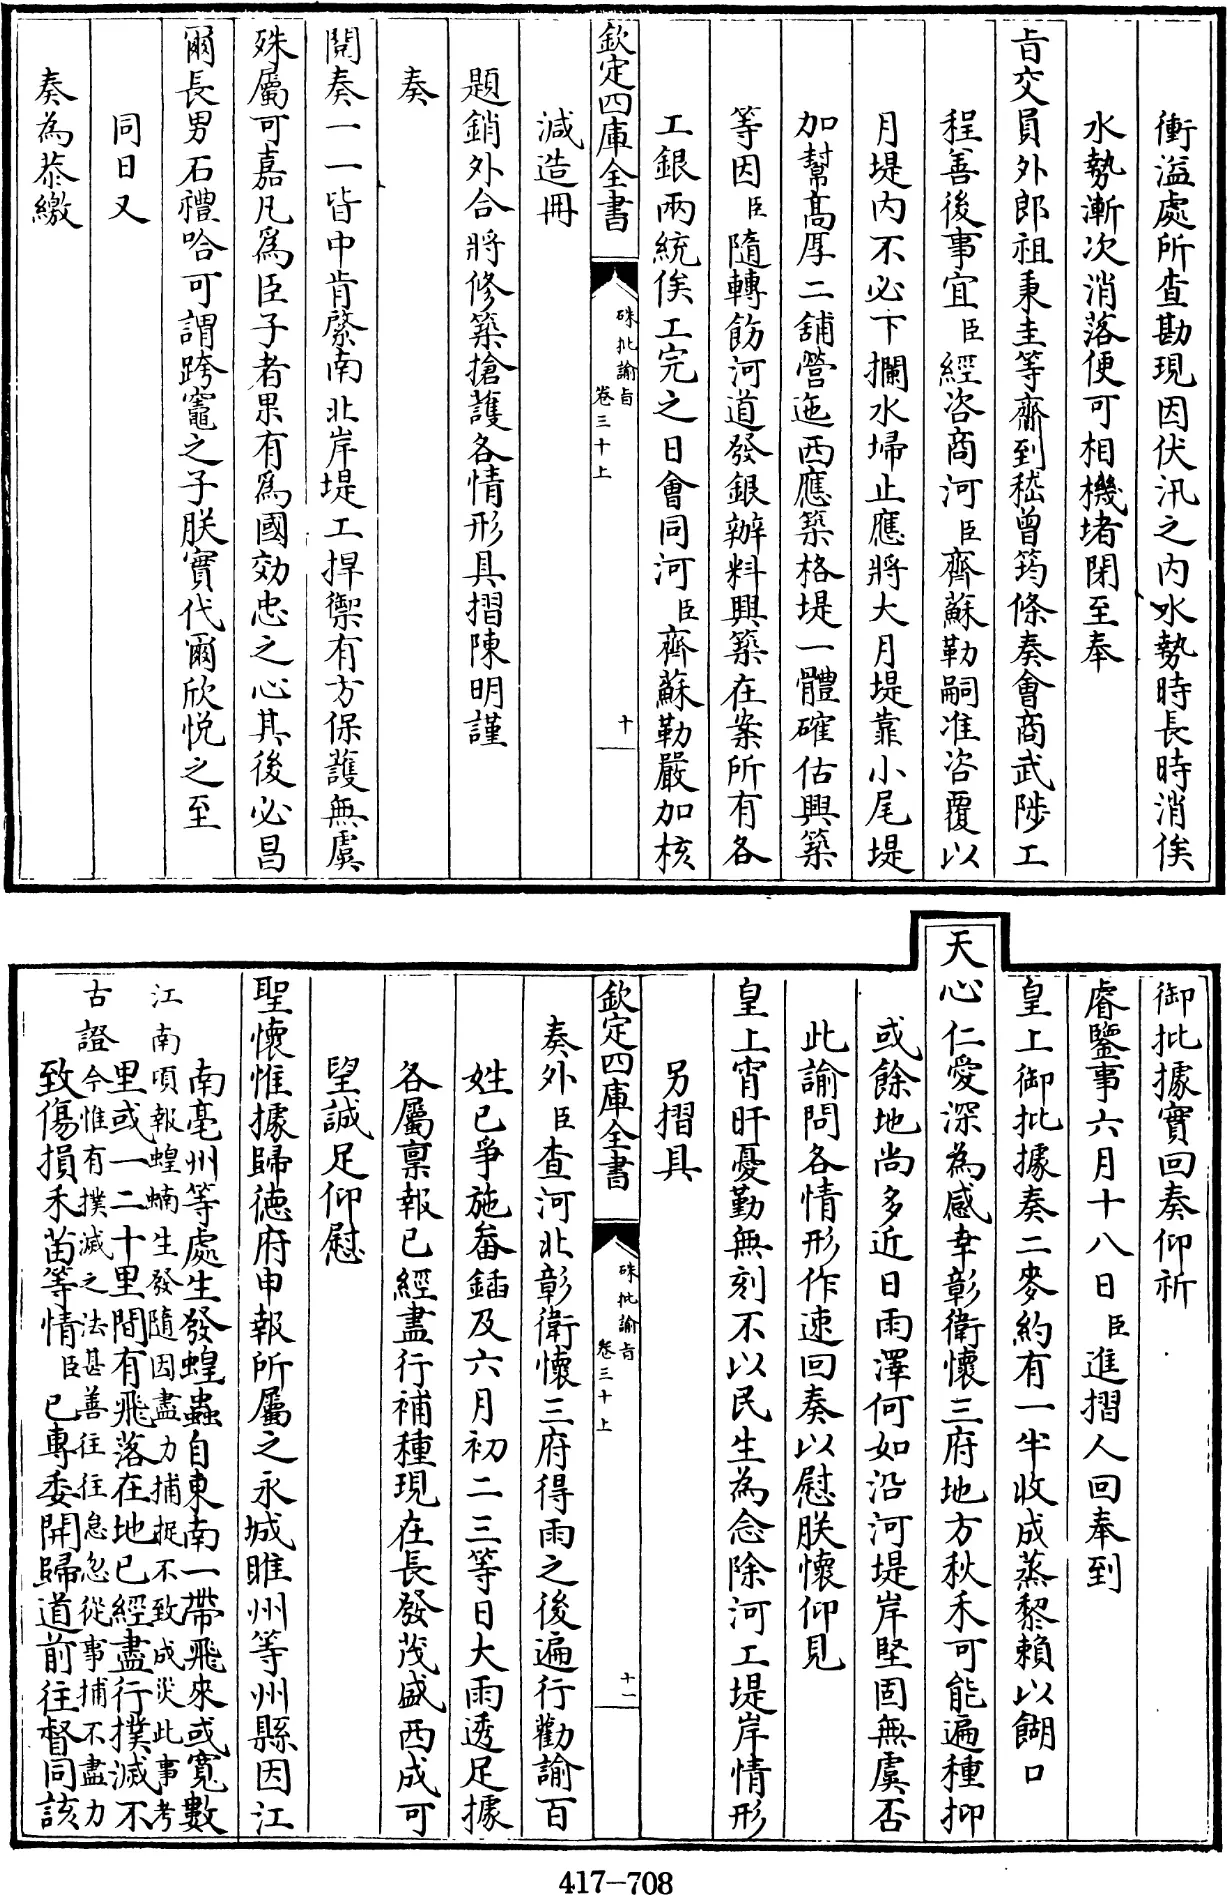 衝溢處所查勘現因伏汛之内水勢時長時消俟
水勢漸次消落便可相機堵閉至奉
旨交員外郎祖秉圭等齎到嵇曾筠條奏會商武陟工
程善後事宜臣經咨商河臣齊蘇勒嗣准咨覆以
月堤内不必下攔水埽止應將大月堤靠小尾堤
加幫髙厚二舖營迤西應築格堤一體確估興築
等因臣隨轉飭河道發銀辦料興築在案所有各
工銀兩統俟工完之日會同河臣齊蘇勒嚴加核
欽定四庫全書
硃批諭旨
卷三十上
十
減造冊
題銷外合將修築搶護各情形具摺陳明謹
奏
閱奏一一皆中肯綮南北岸堤工捍禦有方保護無虞
殊屬可嘉凡爲臣子者果有爲國効忠之心其後必昌
爾長男石禮哈可謂跨竈之子朕實代爾欣悦之至
同日又
奏為恭繳
御批據實回奏仰祈
睿鑒事六月十八日臣進摺人回奉到
皇上御批據奏二麥約有一半收成蒸黎賴以餬口
天心仁愛深為感幸彰衛懷三府地方秋禾可能遍種抑
或餘地尚多近日雨澤何如沿河堤岸堅固無虞否
此諭問各情形作速回奏以慰朕懷仰見
皇上宵旰憂勤無刻不以民生為念除河工堤岸情形
另摺具
欽定四庫全書
硃批諭旨
卷三十上
十一
奏外臣查河北彰衛懷三府得雨之後遍行勸諭百
姓已爭施畚鍤及六月初二三等日大雨透足據
各屬禀報已經盡行補種現在長發茂盛西成可
望誠足仰慰
聖懷惟據歸德府申報所屬之永城睢州等州縣因江
南亳州等處生發蝗蟲自東南一帶飛來或寬數
江南項報蝗蝻生發隨因盡力捕捉不致成災此事考
里或一二十里間有飛落在地已經盡行撲滅不
古證今惟有撲滅之法甚善往往怠忽從事捕不盡力
致傷損禾苗等情臣已專委開歸道前往督同該
417-708